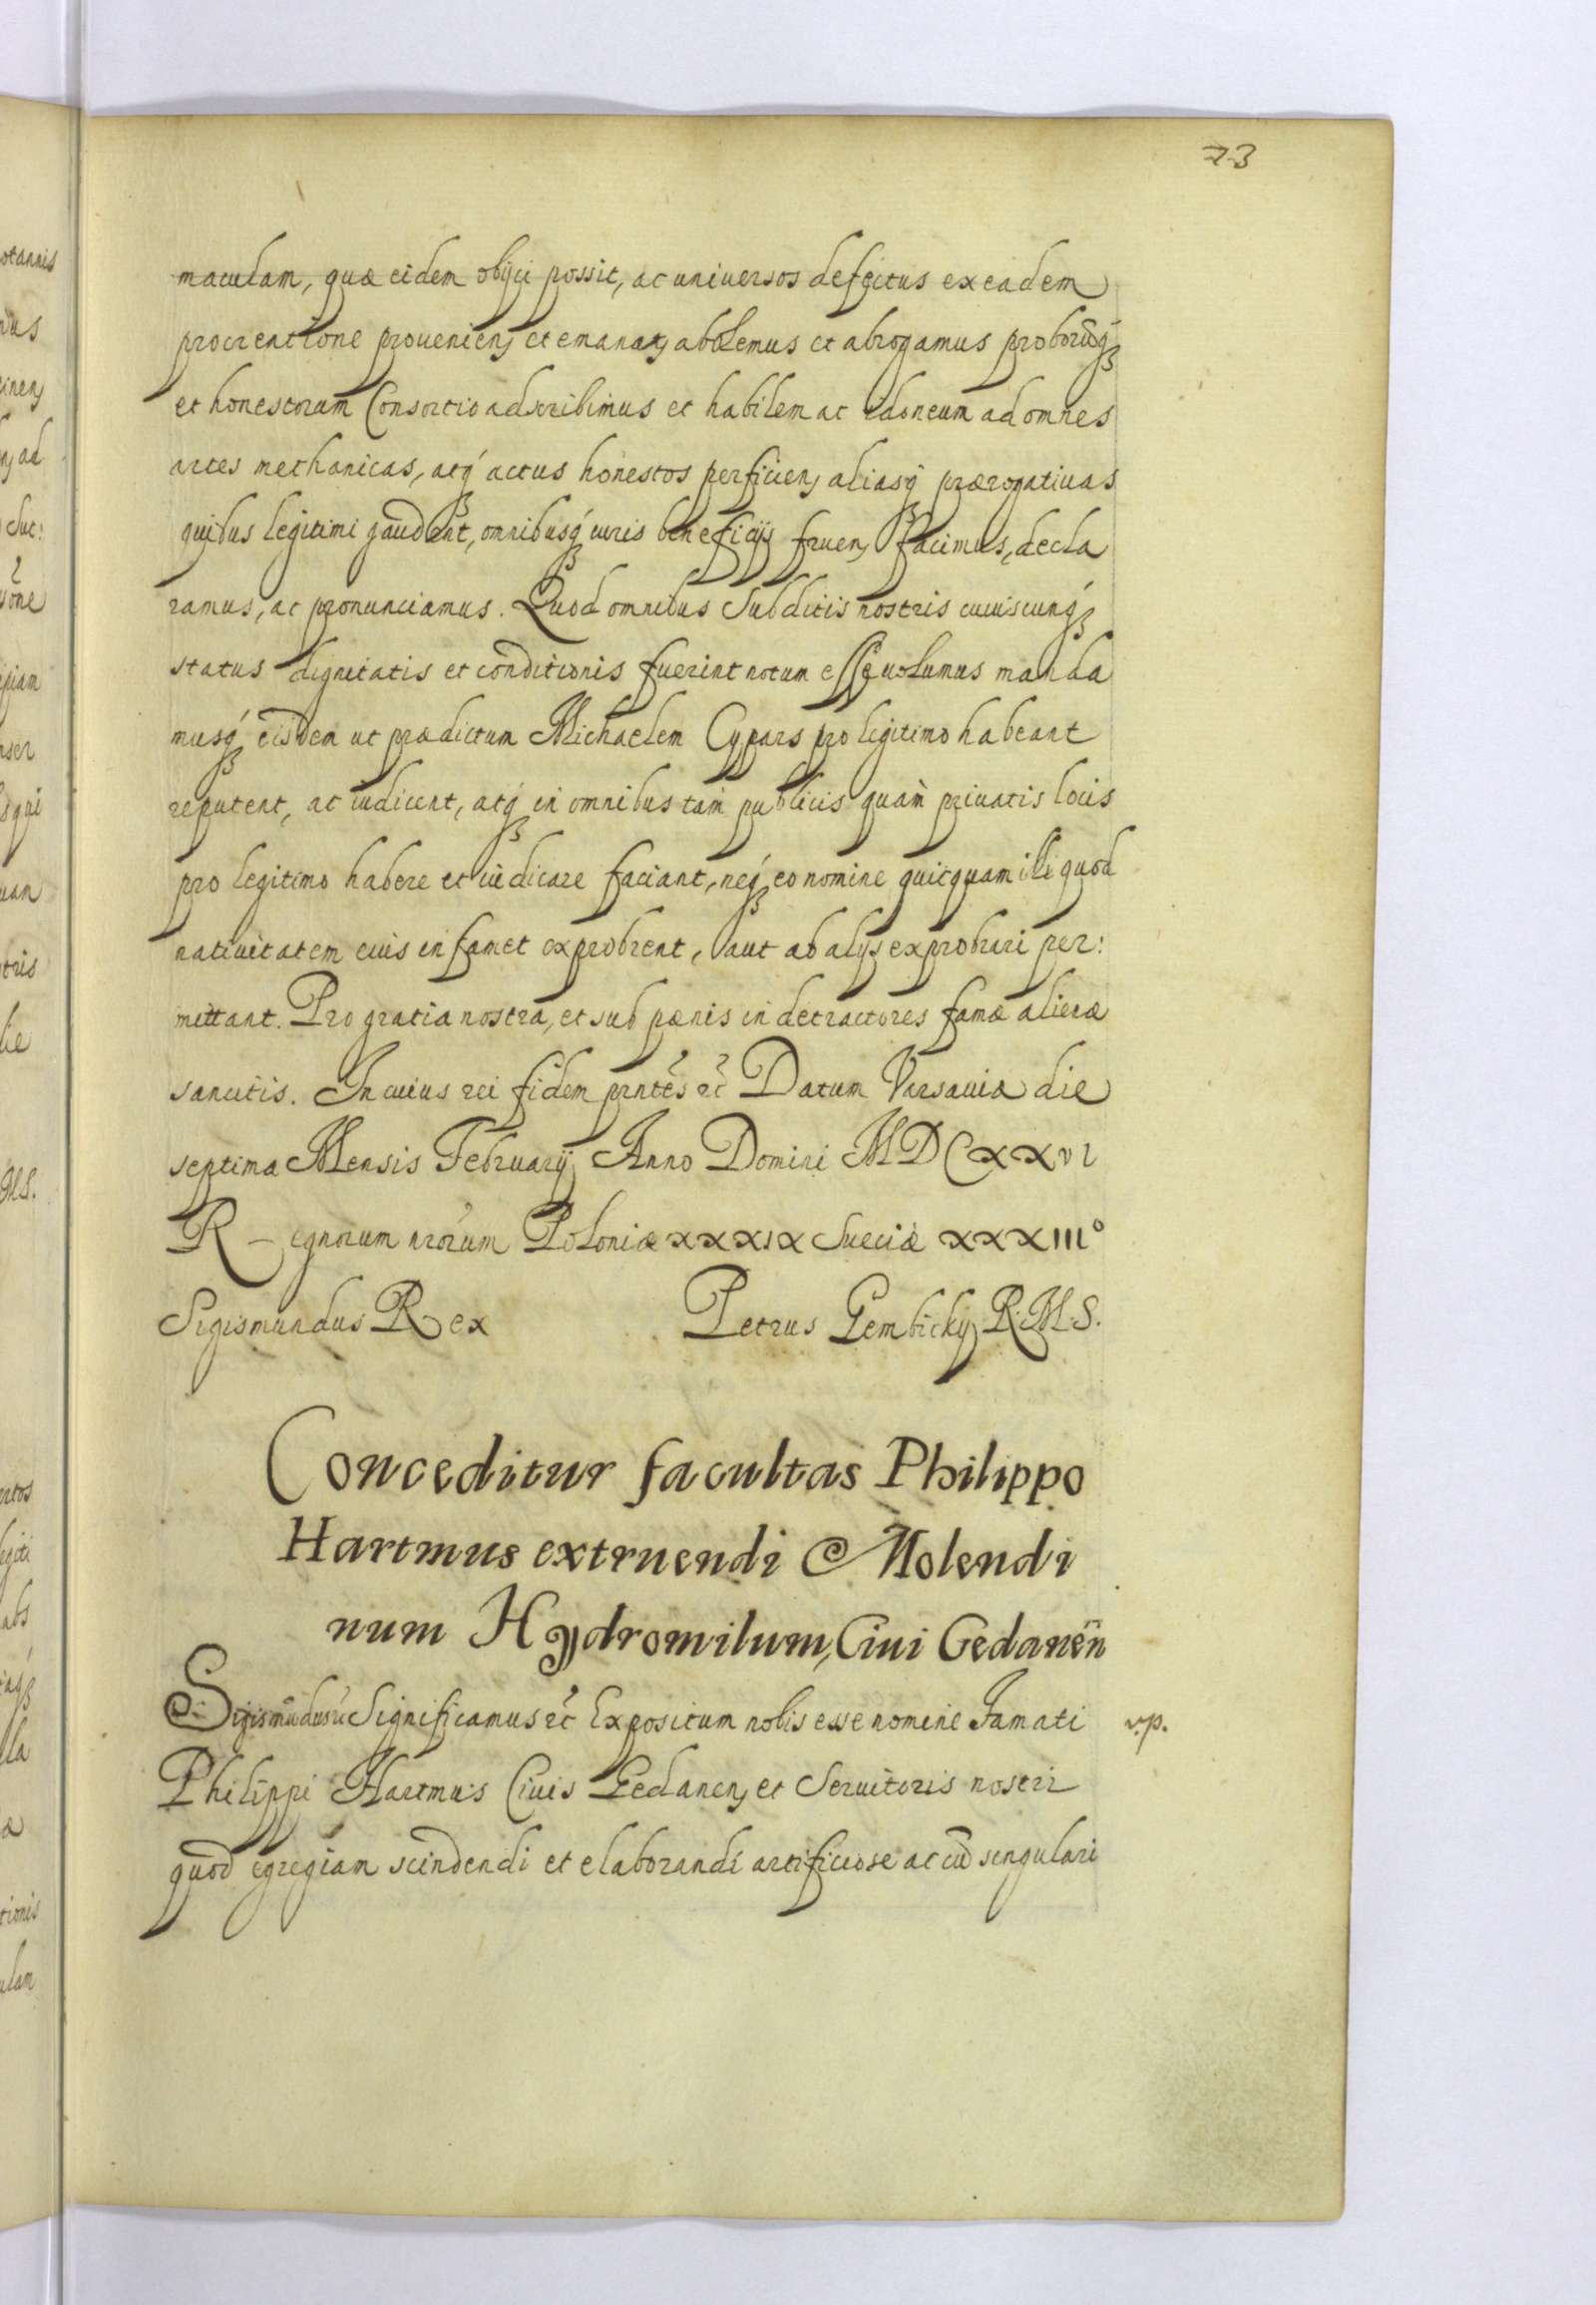 73
maculam, quæ eidem obijci possit, ac universos defectus ex eadem
procreatione provenien, et emanan, abolemus et abrogamus proborūq́
et honestorum Consortio adscribimus et habilem ac idoneum ad omnes
artes mechanicas, atq́ actus honestos perficien, aliasq́ prærogativas
quibus legitimi gaudent, omnibusq́ iuris beneficijs fruen, facimus, decla
ramus, ac pronunciamus. Quod omnibus Subditis nostris cuiuscunq́
status dignitatis et conditionis fuerint notum esse volumus manda
musq́ eisdem ut prædictum Michaelem Cypars pro legitimo habeant
reputent, ac iudicent, atq́ in omnibus tam publicis quam privatis locis
pro legitimo habere et iudicare faciant, neq́ eo nomine quicquam illi quod
nativitatem eius infamet exprobrent, aut ab alijs exprobrari per:
mittant. Pro gratia nostra, et sub pœnis in detractores famæ alienæ
sancitis. In cuius rei fidem prntes ec Datum Varsaviæ die
septima Mensis Februarij Anno Domini MDCXXVI
Regnorum nrorum Poloniæ XXXIX Sueciæ XXXIII°
Sigismundus Rex Petrus Gembicky R.M.S.
Conceditur facultas Philippo
Hartmus extruendi Molendi
num Hydromilum, Ciui Gedanen
Sigismūdus ec Significamus ec Expositum nobis esse nomine Famati v.p.
Philippi Hartmus Civis Gedanen, et Servitoris nostri
quod egregiam scindendi et elaborandi artificiose ac cū singulari